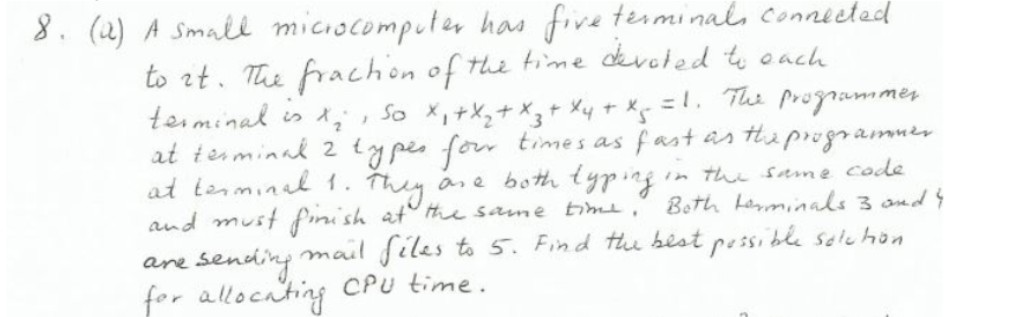 8. (a) A small microcomputer has five terminals connected
to it. The fraction of the time devoted to each
terminal is xᵢ, so x₁+x₂+x₃+x₄+x₅=1. The programmer
at terminal 2 types four times as fast as the programmer
at terminal 1. They are both typing in the same code
and must finish at the same time. Both terminals 3 and 4
are sending mail files to 5. Find the best possible solution
for allocating CPU time.